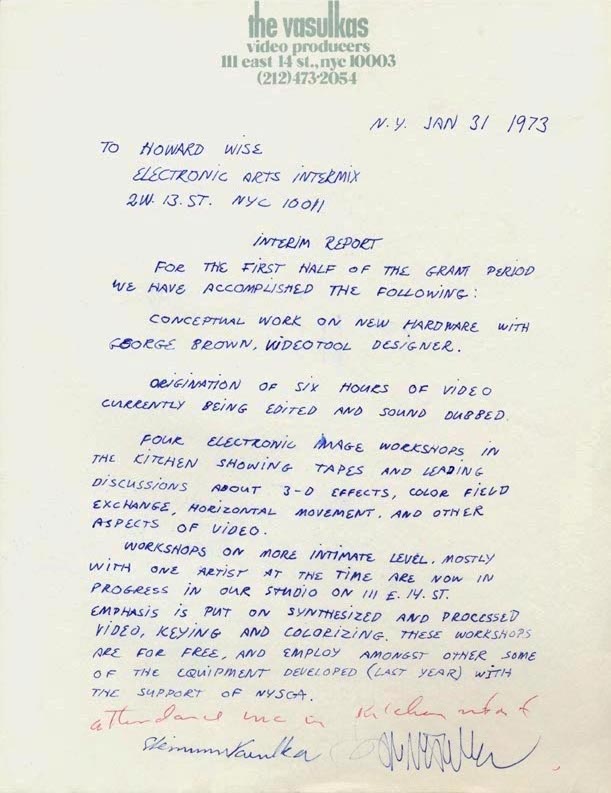 the vasulkas
video producers
111 east 14 st., nyc 10003
(212) 473-2054
N.Y. JAN 31 1973
TO HOWARD WISE
ELECTRONIC ARTS INTERMIX
2W. 13. ST. NYC 10011
INTERIM REPORT
FOR THE FIRST HALF OF THE GRANT PERIOD
WE HAVE ACCOMPLISHED THE FOLLOWING:
CONCEPTUAL WORK ON NEW HARDWARE WITH
GEORGE BROWN, VIDEOTOOL DESIGNER.
ORIGINATION OF SIX HOURS OF VIDEO
CURRENTLY BEING EDITED AND SOUND DUBBED.
FOUR ELECTRONIC IMAGE WORKSHOPS IN
THE KITCHEN SHOWING TAPES AND LEADING
DISCUSSIONS ABOUT 3-D EFFECTS, COLOR FIELD
EXCHANGE, HORIZONTAL MOVEMENT, AND OTHER
ASPECTS OF VIDEO.
WORKSHOPS ON MORE INTIMATE LEVEL, MOSTLY
WITH ONE ARTIST AT THE TIME ARE NOW IN
PROGRESS IN OUR STUDIO ON 111 E. 14. ST.
EMPHASIS IS PUT ON SYNTHESIZED AND PROCESSED
VIDEO, KEYING AND COLORIZING. THESE WORKSHOPS
ARE FOR FREE, AND EMPLOY AMONGST OTHER SOME
OF THE EQUIPMENT DEVELOPED (LAST YEAR) WITH
THE SUPPORT OF NYSCA.
attendance in Kitchen
Vasulka